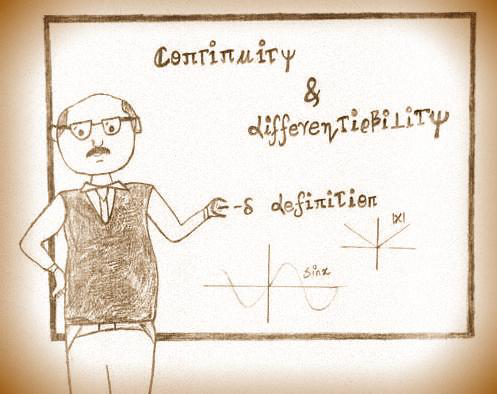 Continuity
&
differentiability
ϵ-δ definition
|x|
Sinx